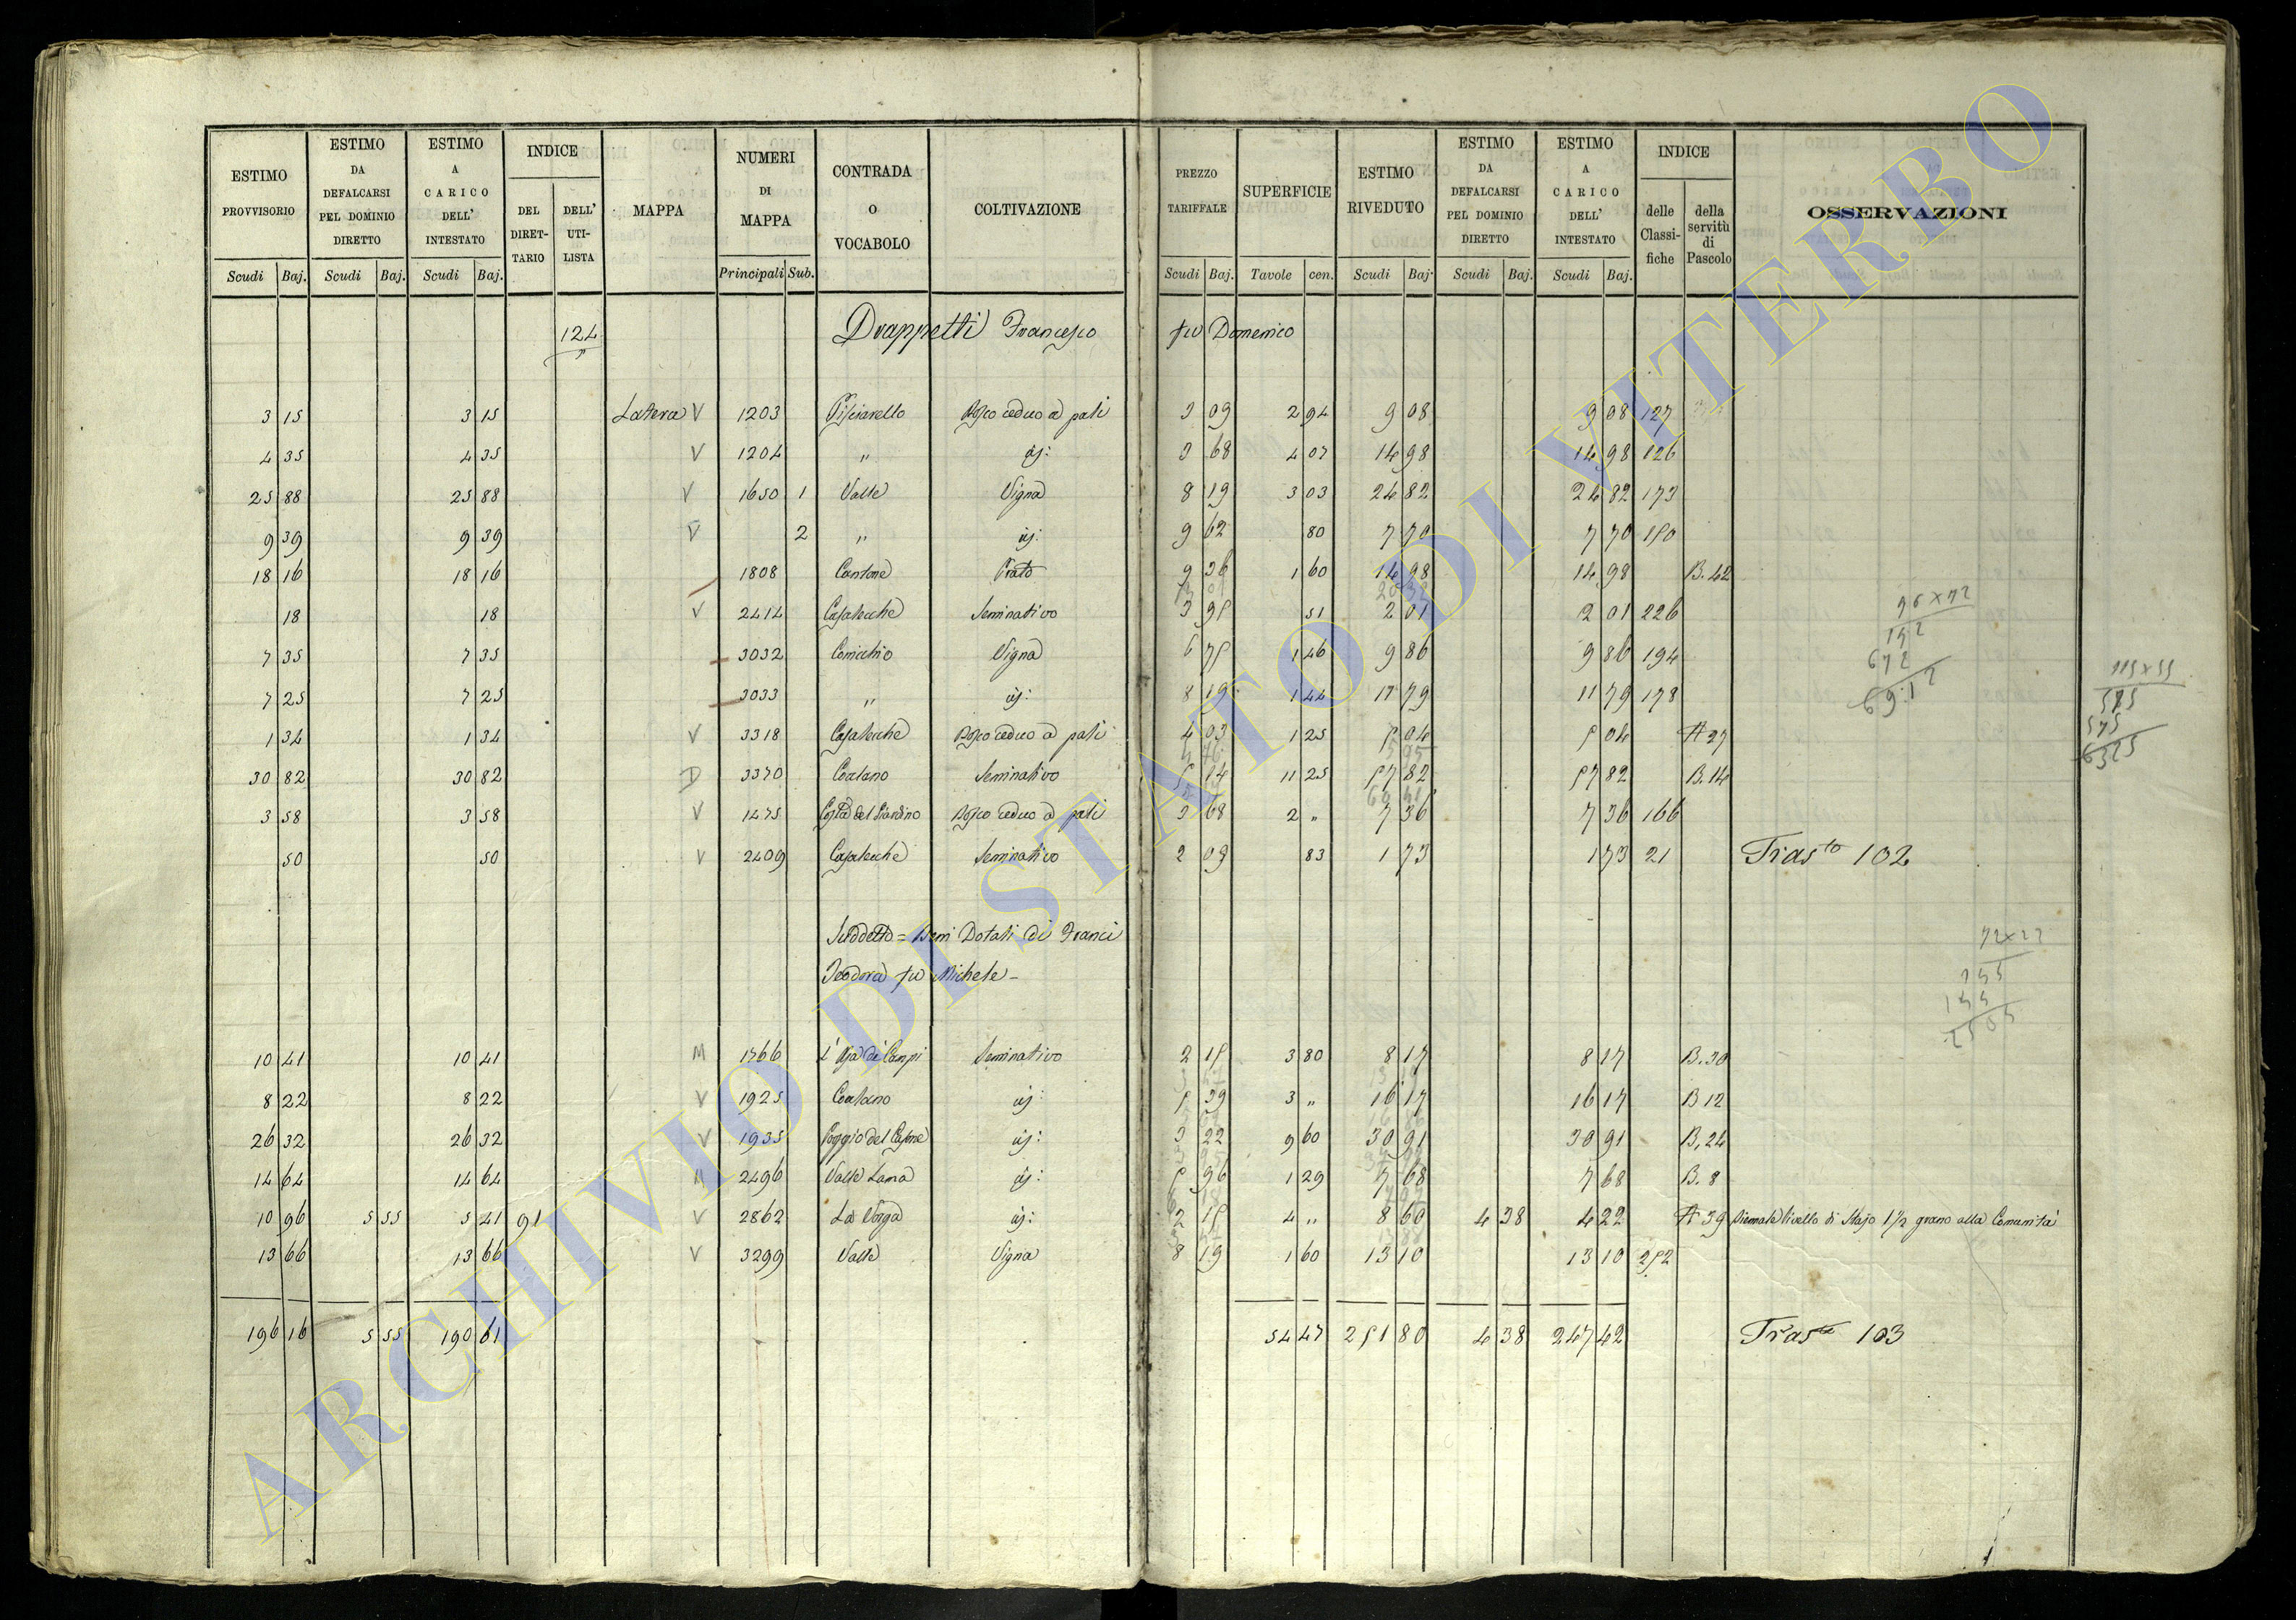 ESTIMO PROVVISORIO Scudi Baj. ESTIMO DA DEFALCARSI PEL DOMINIO DIRETTO Scudi Baj. ESTIMO A CARICO DELL' INTESTATO Scudi Baj. INDICE DEL DIRETTARIO DELL' UTILISTA MAPPA NUMERI DI MAPPA Principali Sub. CONTRADA O VOCABOLO COLTIVAZIONE PREZZO TARIFFALE Scudi Baj. SUPERFICIE Tavole cen. ESTIMO RIVEDUTO Scudi Baj. ESTIMO DA DEFALCARSI PEL DOMINIO DIRETTO Scudi Baj. ESTIMO A CARICO DELL' INTESTATO Scudi Baj. INDICE delle Classifiche della servitù di Pascolo OSSERVAZIONI
124 Drappetti Francesco fu Domenico
3 15 3 15 Latera V 1203 Pisciarello Bosco ceduo a pali 3 09 2 94 9 08 9 08 127
4 35 4 35 V 1204 " id: 3 68 4 07 14 98 14 98 126
25 88 25 88 V 1650 1 Valle Vigna 8 19 3 03 24 82 24 82 173
9 39 9 39 V 2 " id: 9 62 80 7 70 7 70 150
18 16 18 16 1808 Cantone Prato 9 36 1 60 14 98 14 98 B. 42
18 18 V 2414 Casalecche Seminativo 3 95 51 2 01 2 01 226
7 35 7 35 3032 Cornicchio Vigna 6 75 1 46 9 86 9 86 194
7 25 7 25 3033 " id: 8 19 1 44 11 79 11 79 178
1 34 1 34 V 3318 Casalecche Bosco ceduo a pali 4 03 1 25 5 04 5 04 A 27
30 82 30 82 D 3370 Coalano Seminativo 5 14 11 25 57 82 57 82 B. 14
3 58 3 58 V 1475 Costa del Giardino Bosco ceduo a pali 3 68 2 " 7 36 7 36 166
50 50 V 2409 Casalecche Seminativo 2 09 83 1 73 1 73 21 Trasto 102
Suddetto = Beni Dotali di Franci
Teodora fu Michele -
10 41 10 41 M 1766 Seminativo 2 15 3 80 8 17 8 17 B. 30
8 22 8 22 V 1925 Coalano id: 5 39 3 " 16 17 16 17 B 12
26 32 26 32 V 1935 Poggio del id: 3 22 9 60 30 91 30 91 B, 24
14 64 14 64 2496 Valle Lama id: 5 96 1 29 7 68 7 68 B. 8
10 96 5 55 5 41 91 V 2862 La id: 2 15 4 " 8 60 4 38 4 22 A 39 Biennale livello di Stajo 1 1/2 grano alla Comunità
13 66 13 66 V 3299 Valle Vigna 8 19 1 60 13 10 13 10 252
196 16 5 55 190 61 54 47 251 80 4 38 247 42 Trasto 103
96 x 72
192
672
6912
115 x 55
575
575
6325
ARCHIVIO DI STATO DI VITERBO